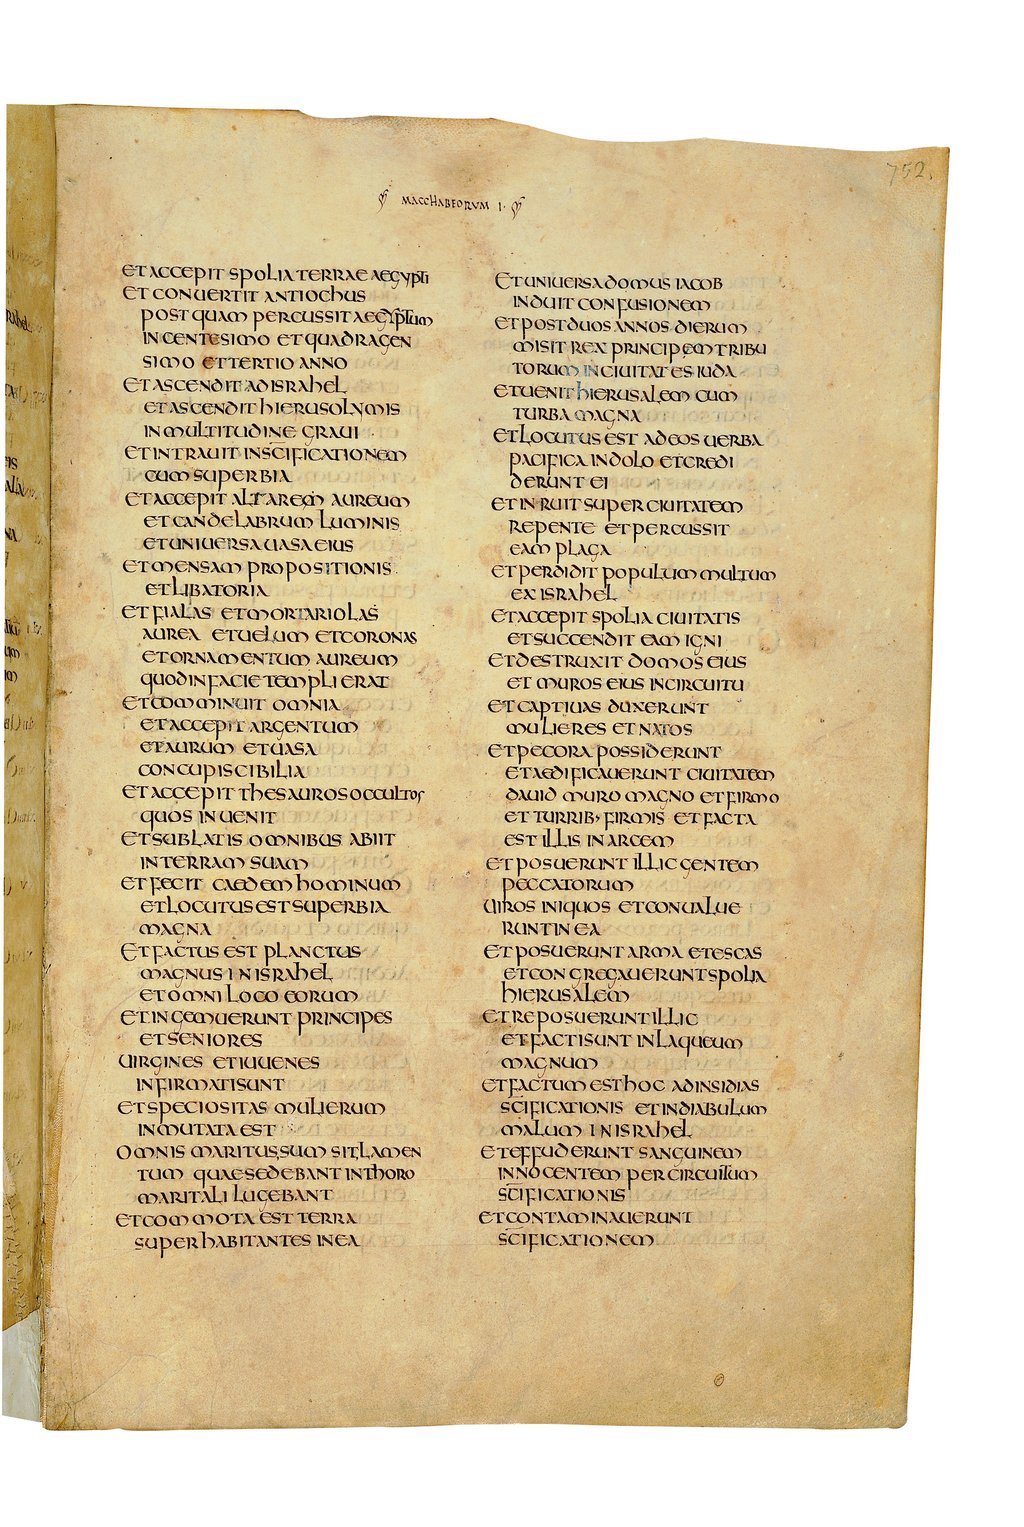 752.
MACCHABEORUM I.
ET ACCEPIT SPOLIA TERRAE AEGYPTI
ET CONUERTIT ANTIOCHUS
POSTQUAM PERCUSSIT AEGYPTUM
IN CENTESIMO ET QUADRAGEN
SIMO ET TERTIO ANNO
ET ASCENDIT AD ISRAHEL
ET ASCENDIT HIERUSOLYMIS
IN MULTITUDINE GRAUI
ET INTRAUIT IN SCIFICATIONEM
CUM SUPERBIA
ET ACCEPIT ALTAREM AUREUM
ET CANDELABRUM LUMINIS
ET UNIUERSA UASA EIUS
ET MENSAM PROPOSITIONIS
ET LIBATORIA
ET FIALAS ET MORTARIOLAS
AUREA ET UELUM ET CORONAS
ET ORNAMENTUM AUREUM
QUOD IN FACIE TEMPLI ERAT
ET COMMINUIT OMNIA
ET ACCEPIT ARGENTUM
ET AURUM ET UASA
CONCUPISCIBILIA
ET ACCEPIT THESAUROS OCCULTOS
QUOS INUENIT
ET SUBLATIS OMNIBUS ABIIT
IN TERRAM SUAM
ET FECIT CAEDEM HOMINUM
ET LOCUTUS EST SUPERBIA
MAGNA
ET FACTUS EST PLANCTUS
MAGNUS IN ISRAHEL
ET OMNI LOCO EORUM
ET INGEMUERUNT PRINCIPES
ET SENIORES
UIRGINES ET IUUENES
INFIRMATI SUNT
ET SPECIOSITAS MULIERUM
INMUTATA EST
OMNIS MARITUS SUMSIT LAMEN
TUM QUAE SEDEBANT IN THORO
MARITALI LUGEBANT
ET COMMOTA EST TERRA
SUPER HABITANTES IN EA
ET UNIUERSA DOMUS IACOB
INDUIT CONFUSIONEM
ET POST DUOS ANNOS DIERUM
MISIT REX PRINCIPEM TRIBU
TORUM IN CIUITATES IUDA
ET UENIT HIERUSALEM CUM
TURBA MAGNA
ET LOCUTUS EST AD EOS UERBA
PACIFICA IN DOLO ET CREDI
DERUNT EI
ET INRUIT SUPER CIUITATEM
REPENTE ET PERCUSSIT
EAM PLAGA
ET PERDIDIT POPULUM MULTUM
EX ISRAHEL
ET ACCEPIT SPOLIA CIUITATIS
ET SUCCENDIT EAM IGNI
ET DESTRUXIT DOMOS EIUS
ET MUROS EIUS IN CIRCUITU
ET CAPTIUAS DUXERUNT
MULIERES ET NATOS
ET PECORA POSSIDERUNT
ET AEDIFICAUERUNT CIUITATEM
DAUID MURO MAGNO ET FIRMO
ET TURRIB, FIRMIS ET FACTA
EST ILLIS IN ARCEM
ET POSUERUNT ILLIC GENTEM
PECCATORUM
UIROS INIQUOS ET CONUALUE
RUNT IN EA
ET POSUERUNT ARMA ET ESCAS
ET CONGREGAUERUNT SPOLIA
HIERUSALEM
ET REPOSUERUNT ILLIC
ET FACTI SUNT IN LAQUEUM
MAGNUM
ET FACTUM EST HOC AD INSIDIAS
SCIFICATIONIS ET IN DIABULUM
MALUM IN ISRAHEL
ET EFFUDERUNT SANGUINEM
INNOCENTEM PER CIRCUITUM
SCIFICATIONIS
ET CONTAMINAUERUNT
SCIFICATIONEM